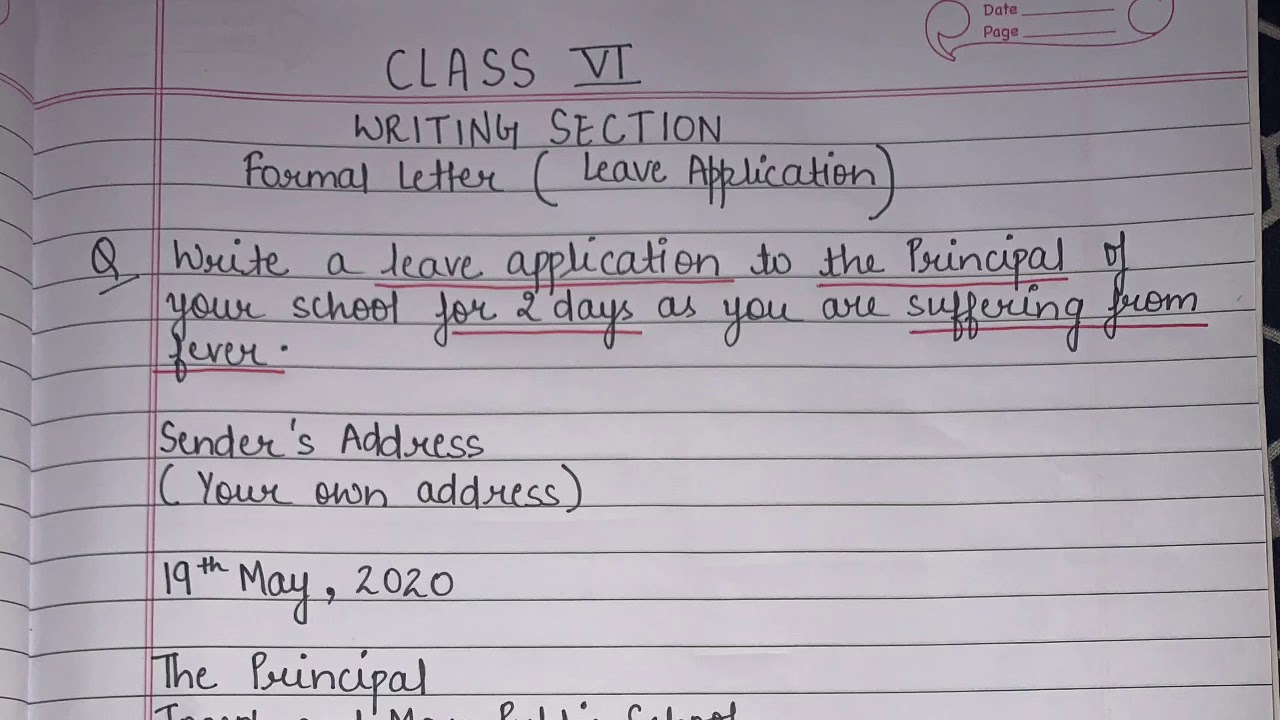 Date
Page
CLASS VI
WRITING SECTION
Formal Letter ( Leave Application)
Q Write a leave application to the Principal of
your school for 2 days as you are suffering from
fever.
Sender's Address
(Your own address)
19th May, 2020
The Principal
Public School